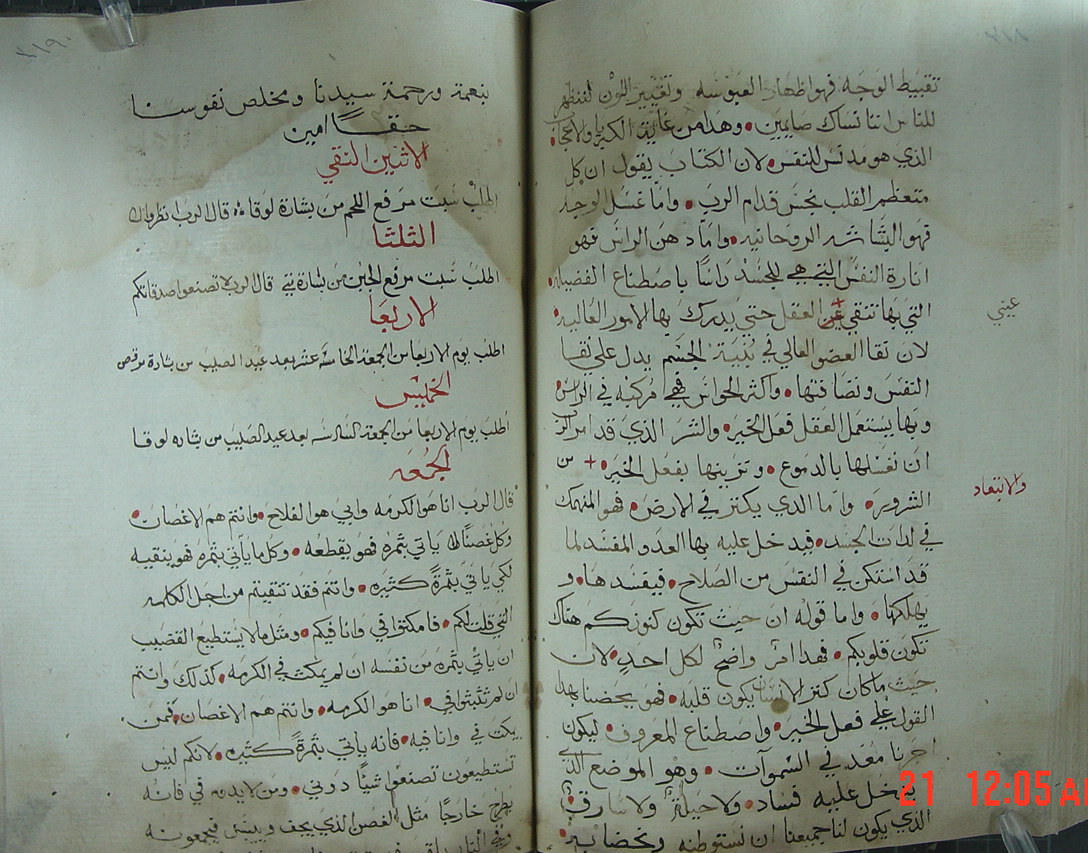 ٢١٨
تقبيط الوجه فهو اظهار العبوسه وتغيير اللون لتنظهر
للناس اننا نساك صايمين وهذا من غاية الكبريا والاعجاب
الذي هو مدنس للنفس لان الكتاب يقول ان كل
متعظم القلب نجس قدام الرب واما غسل الوجه
فهو البشاشه الروحانيه واما دهن الراس فهو
انارة النفس التي هي للجسد راسًا باصطناع الفضيله
التي بها تنقي عن العقل حتي يدرك بها الامور العاليه
عيني
لان نقا العضو العالي في بنية الجسم يدل علي نقا
النفس ونضافتها واكثر الحواس فهي مركبه في الراس
وبها يستعمل العقل فعل الخير والشر الذي قد امر الرب
ان نغسلها بالدموع ونزينها بفعل الخير + من
والابتعاد
الشرور واما الدي يكنز في الارض فهو المنهمك
في لدات الجسد فيدخل عليه بها العدو المفسد لما
قد استكن في النفس من الصلاح فيفسدها و
يهلكها واما قوله ان حيث تكون كنوزكم هناك
تكون قلوبكم فهدا امر واضح لكل احد لان
حيث ماكان كنز الانسان يكون قلبه فهو يحضنا بهدا
القول علي فعل الخير واصطناع المعروف ليكون
اجرنا معد في السموات وهو الموضع الذي
يدخل عليه فساد ولا حيلة ولا سارق
الذي يكون لنا جميعنا ان نستوطنه ونحضا به
٢١٩
بنعمة ورحمة سيدنا ومخلص نفوسنا
حقًا امين
الاثنين النقي
اطلب سبت مرفع اللحم من بشارة لوقا قال الرب انظروا
الثلثا
اطلب سبت مرفع الجبن من بشارة متي قال الرب لا تصنعوا صدقاتكم
الاربعا
اطلب يوم الاربعا من الجمعة الخامسة عشر بعد عيد الصليب من بشارة مرقص
الخميس
اطلب يوم الاربعا من الجمعة السادسه بعد عيد الصليب من بشاره لوقا
الجمعه
قال الرب انا هو الكرمه وابي هو الفلاح وانتم هم الاغصان
وكل غصنًا لا ياتي بثمره فهو يقطعه وكل ما ياتي بثمره فهو ينقيه
لكي ياتي بثمرةً كثيره وانتم فقد تنقيتم من اجل الكلمه
التي قلت لكم فامكثوا في وانا فيكم ومثل ما لا يستطيع القضيب
ان ياتي بثمره من نفسه ان لم يمكث في الكرمه كذلك وانتم
ان لم تثبتوا في انا هو الكرمه وانتم هم الاغصان فمن
يمكث في وانا فيه فانه ياتي بثمرةً كثيره لانكم ليس
تستطيعون تصنعوا شيًا دوني ومن لا يثبت في فانه
يطرح خارجًا مثل الغصن الذي يجف وييبس فيجمعونه
وفي النار
21 12:05 A